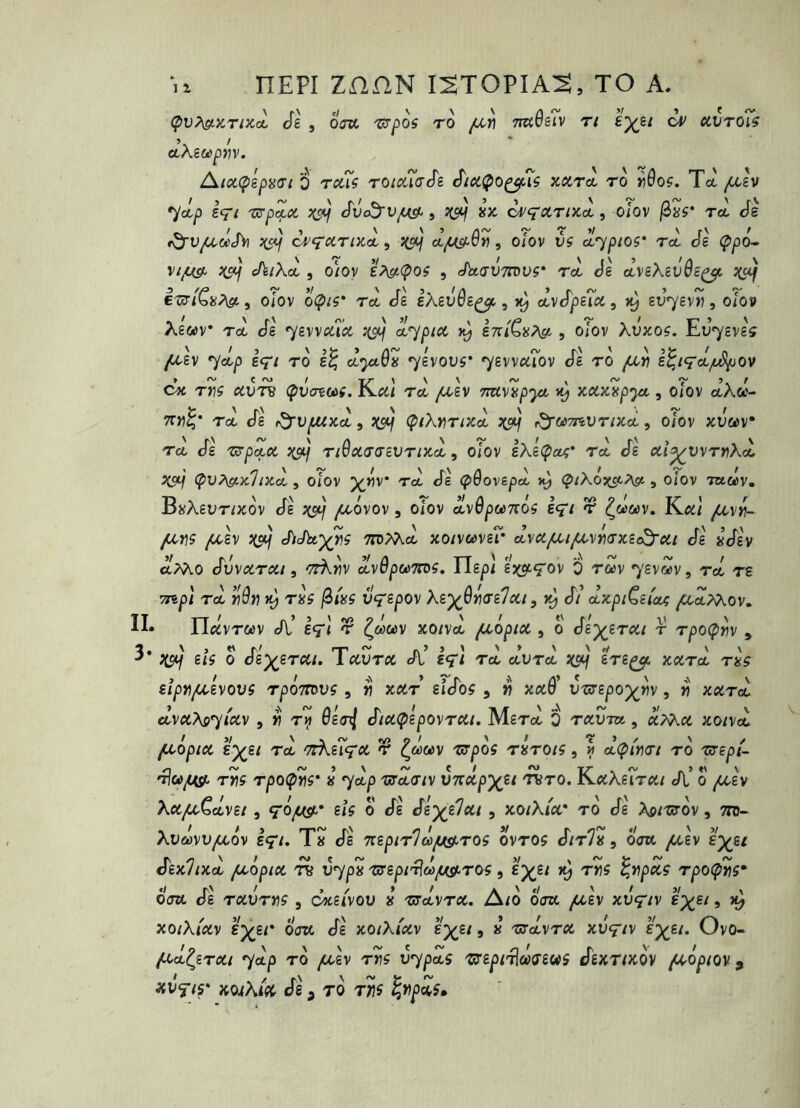 12 ΠΕΡΙ ΖΩΩΝ ΙΣΤΟΡΙΑΣ, ΤΟ Α.
φυλακτικὰ δὲ, ὅσα πρὸς τὸ μὴ παθεῖν τι ἔχει ἐν αὐτοῖς
ἀλεωρήν.
Διαφέρουσι δὲ ταῖς τοιαῖσδε διαφοραῖς κατὰ τὸ ἦθος. Τὰ μὲν
γάρ ἐστι πρᾶα καὶ δύσθυμα, καὶ οὐκ ἐνστατικὰ, οἷον βοῦς· τὰ δὲ
θυμώδη καὶ ἐνστατικὰ, καὶ ἀμαθῆ, οἷον ὗς ἄγριος· τὰ δὲ φρό-
νιμα καὶ δειλὰ, οἷον ἔλαφος, δασύπους· τὰ δὲ ἀνελεύθερα καὶ
ἐπίβουλα, οἷον ὄφις· τὰ δὲ ἐλεύθερα, καὶ ἀνδρεῖα, καὶ εὐγενῆ, οἷον
λέων· τὰ δὲ γενναῖα καὶ ἄγρια καὶ ἐπίβουλα, οἷον λύκος. Εὐγενὲς
μὲν γάρ ἐστι τὸ ἐξ ἀγαθοῦ γένους· γενναῖον δὲ τὸ μὴ ἐξιστάμενον
ἐκ τῆς αὐτοῦ φύσεως. Καὶ τὰ μὲν πανοῦργα καὶ κακοῦργα, οἷον ἀλώ-
πηξ· τὰ δὲ θυμικὰ, καὶ φιλητικὰ καὶ θωπευτικὰ, οἷον κύων·
τὰ δὲ πρᾶα καὶ τιθασσευτικὰ, οἷον ἐλέφας· τὰ δὲ αἰσχυντηλὰ
καὶ φυλακτικὰ, οἷον χήν· τὰ δὲ φθονερὰ καὶ φιλόκαλα, οἷον ταών.
Βουλευτικὸν δὲ καὶ μόνον, οἷον ἄνθρωπός ἐστι τῶν ζώων. Καὶ μνή-
μης μὲν καὶ διδαχῆς πολλὰ κοινωνεῖ· ἀναμιμνήσκεσθαι δὲ οὐδὲν
ἄλλο δύναται, πλὴν ἄνθρωπος. Περὶ ἕκαστον δὲ τῶν γενῶν, τά τε
περὶ τὰ ἤθη καὶ τοὺς βίους ὕστερον λεχθήσεται, καὶ δι' ἀκριβείας μᾶλλον.
II. Πάντων δ' ἐστὶ τῶν ζώων κοινὰ μόρια, ὃ δέχεται τὴν τροφὴν,
3· καὶ εἰς ὃ δέχεται. Ταῦτα δ' ἐστὶ τὰ αὐτὰ καὶ ἕτερα κατὰ τοὺς
εἰρημένους τρόπους, ἢ κατ' εἶδος, ἢ καθ' ὑπεροχὴν, ἢ κατὰ
ἀναλογίαν, ἢ τῇ θέσει διαφέρονται. Μετὰ δὲ ταῦτα, ἄλλα κοινὰ
μόρια ἔχει τὰ πλεῖστα τῶν ζώων πρὸς τούτοις, ᾗ ἀφίησι τὸ περίτ-
τωμα τῆς τροφῆς· οὐ γὰρ πᾶσιν ὑπάρχει τοῦτο. Καλεῖται δ' ὃ μὲν
λαμβάνει, στόμα· εἰς ὃ δὲ δέχεται, κοιλία· τὸ δὲ λοιπὸν, πο-
λυώνυμόν ἐστι. Τοῦ δὲ περιττώματος ὄντος διττοῦ, ὅσα μὲν ἔχει
δεκτικὰ μόρια τοῦ ὑγροῦ περιττώματος, ἔχει καὶ τῆς ξηρᾶς τροφῆς·
ὅσα δὲ ταύτης, ἐκείνου οὐ πάντα. Διὸ ὅσα μὲν κύστιν ἔχει, καὶ
κοιλίαν ἔχει· ὅσα δὲ κοιλίαν ἔχει, οὐ πάντα κύστιν ἔχει. Ὀνο-
μάζεται γὰρ τὸ μὲν τῆς ὑγρᾶς περιττώσεως δεκτικὸν μόριον,
κύστις· κοιλία δὲ, τὸ τῆς ξηρᾶς.